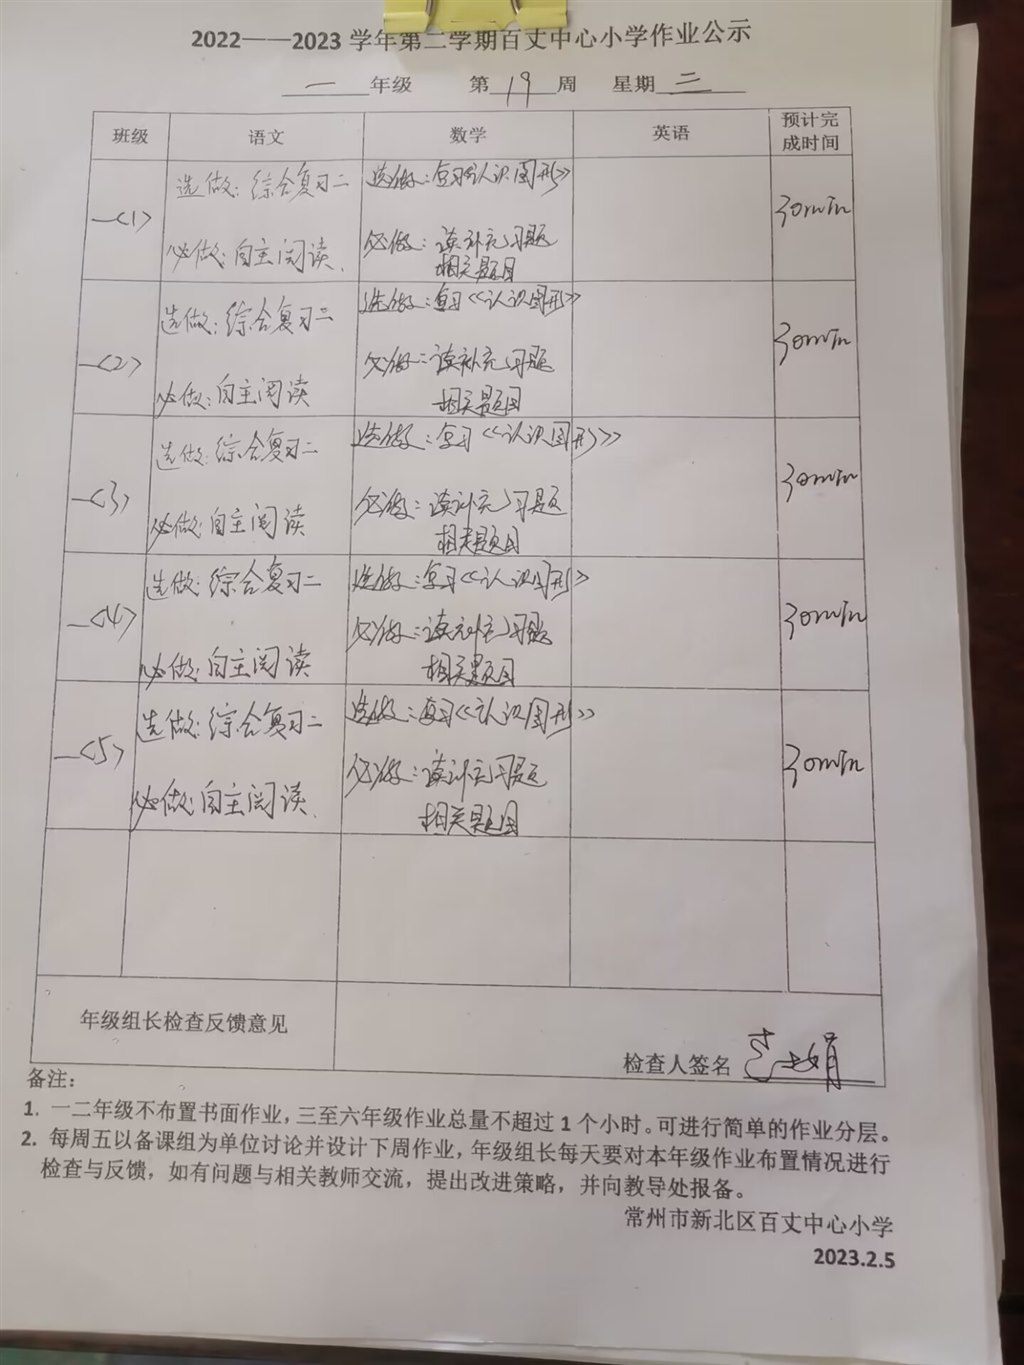 2022——2023 学年第二学期百丈中心小学作业公示
一 年级 第 19 周 星期 三
班级 语文 数学 英语 预计完成时间
一<1> 选做:综合复习二 选做:复习《认识图形》 30min
必做:自主阅读、 必做:读补充习题
相关题目
一<2> 选做:综合复习二 选做:复习《认识图形》 30min
必做:自主阅读 必做:读补充习题
相关题目
一<3> 选做:综合复习二 选做:复习《认识图形》 30min
必做:自主阅读 必做:读补充习题
相关题目
一<4> 选做:综合复习二 选做:复习《认识图形》 30min
必做:自主阅读 必做:读补充习题
相关题目
一<5> 选做:综合复习二 选做:复习《认识图形》 30min
必做:自主阅读、 必做:读补充习题
相关题目
年级组长检查反馈意见
检查人签名
备注:
1. 一二年级不布置书面作业,三至六年级作业总量不超过 1 个小时。可进行简单的作业分层。
2. 每周五以备课组为单位讨论并设计下周作业,年级组长每天要对本年级作业布置情况进行
检查与反馈,如有问题与相关教师交流,提出改进策略,并向教导处报备。
常州市新北区百丈中心小学
2023.2.5